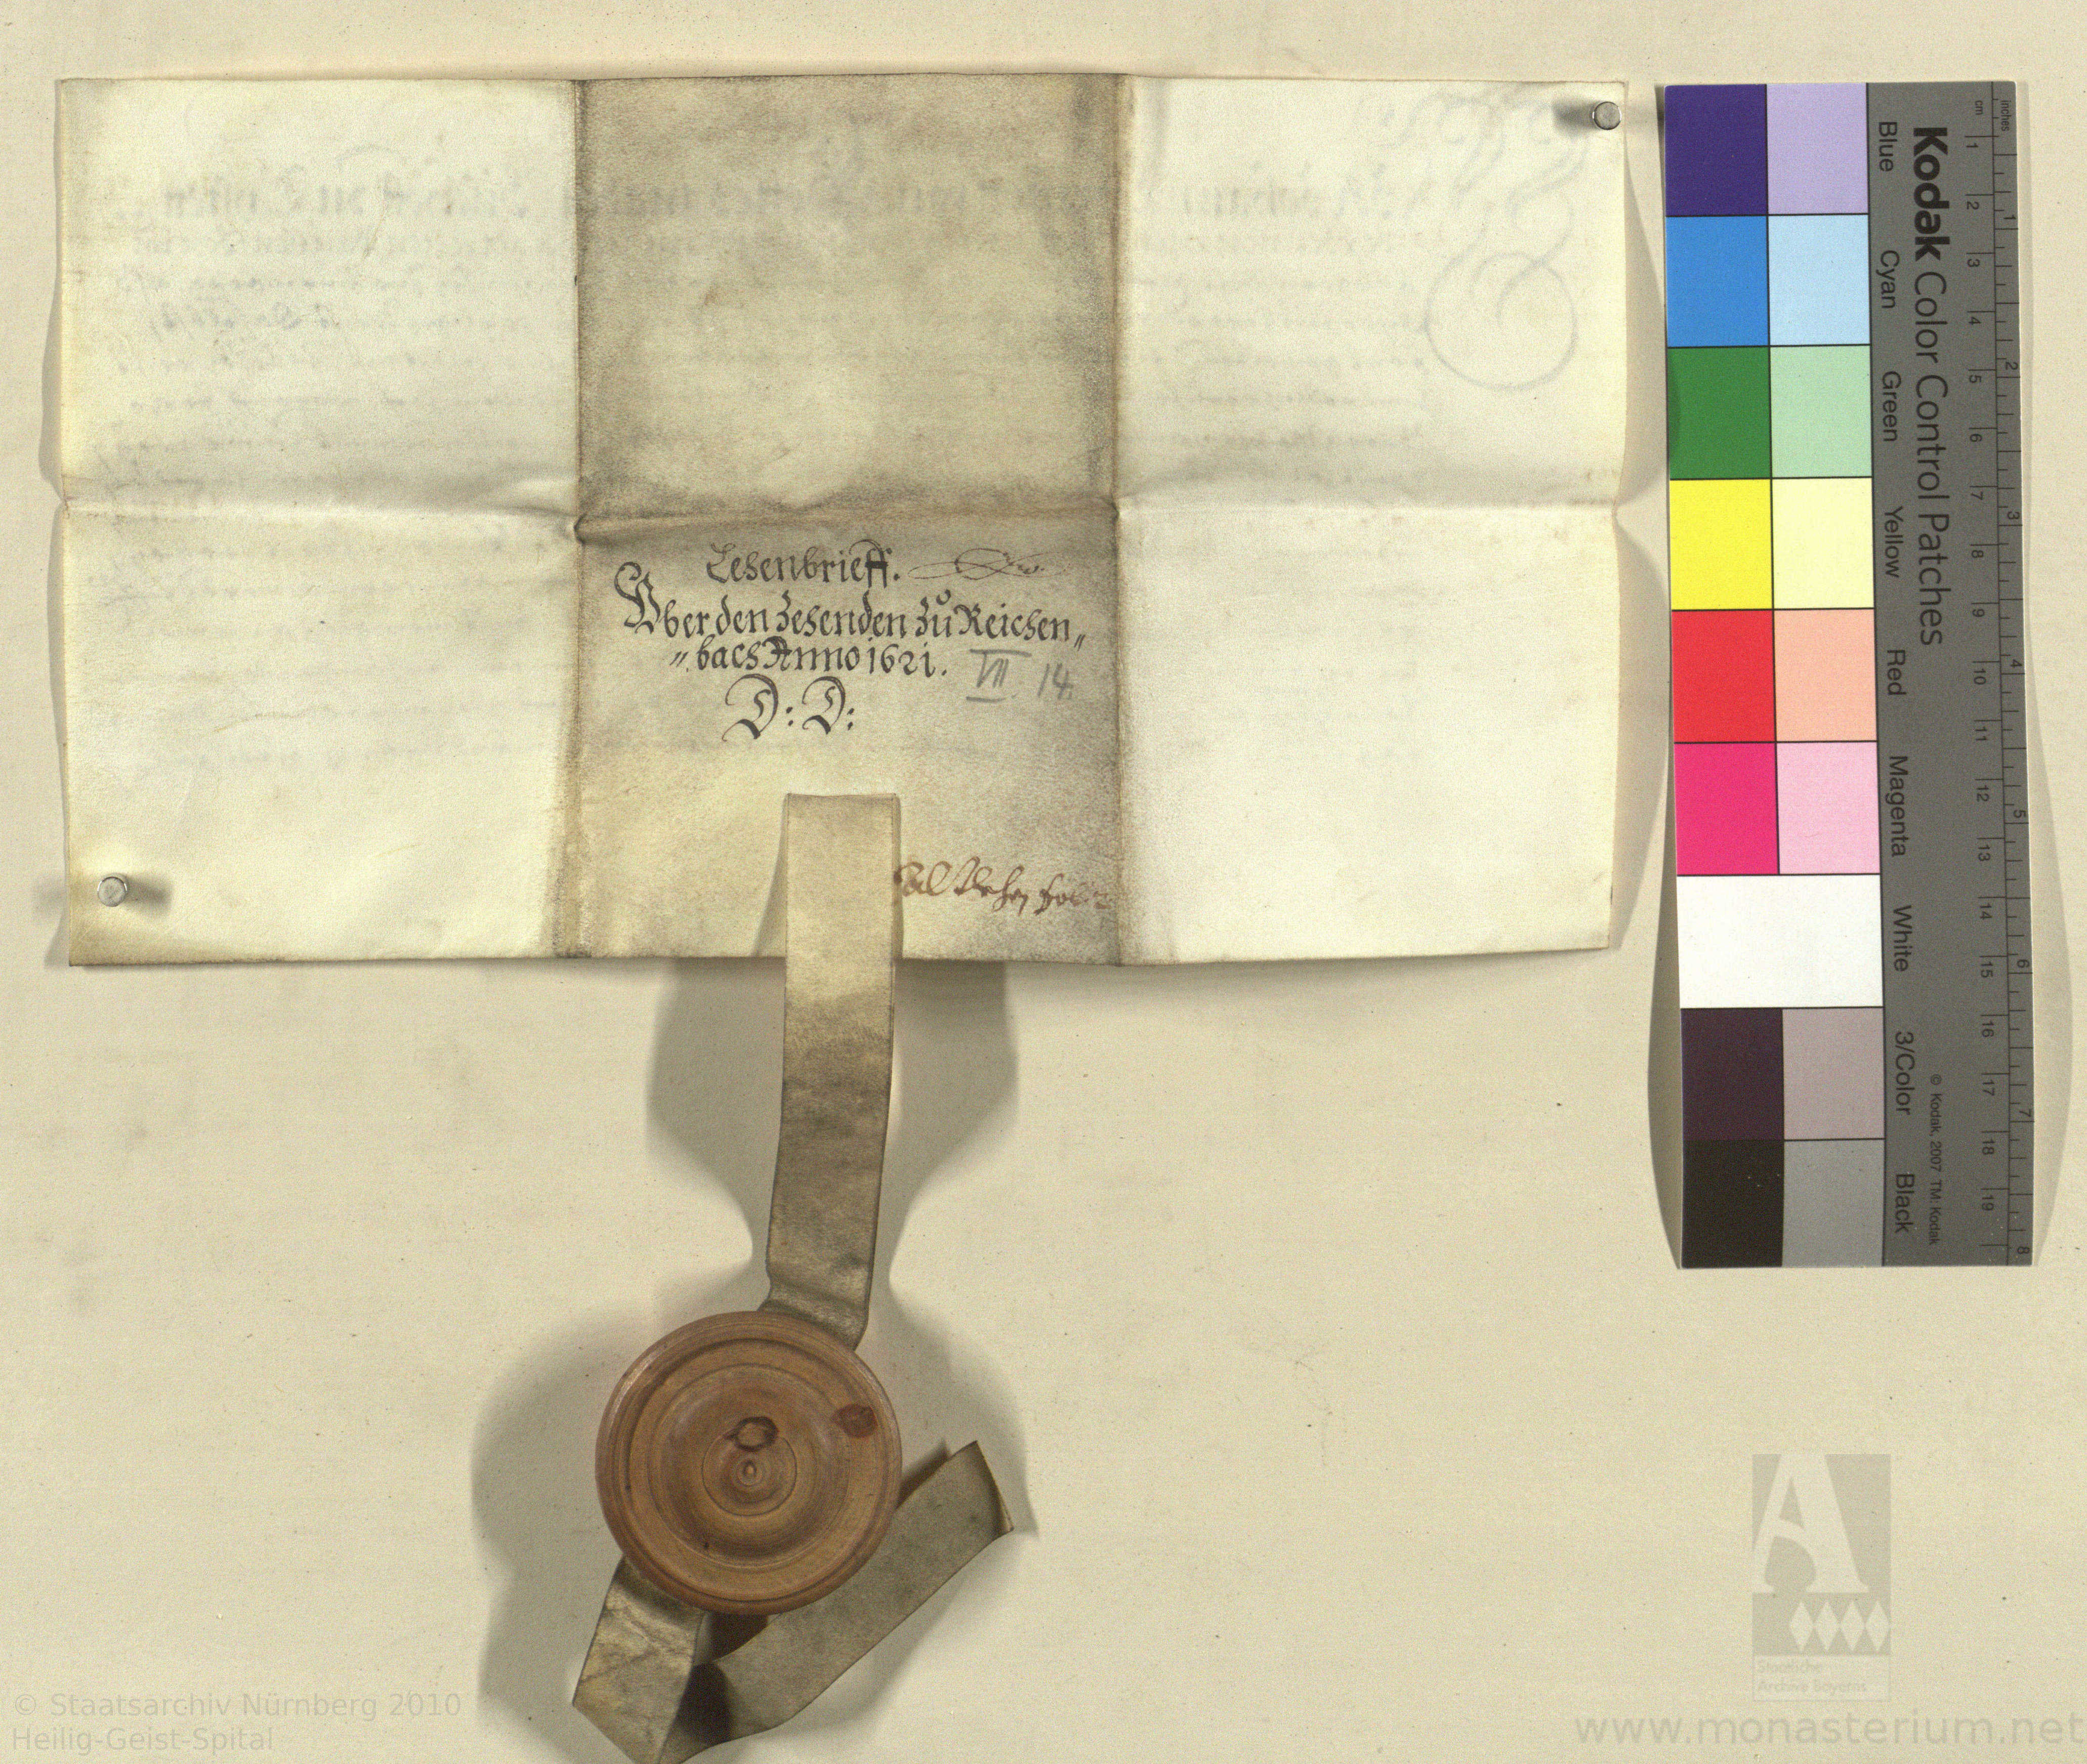 Lehenbrieff.
Vber den Zehenden Zů Reichen„
„bach Anno 1621.
VII. 14.
D: D:
Kodak Color Control Patches
Blue Cyan Green Yellow Red Magenta White 3/Color Black
© Kodak, 2007 TM: Kodak
cm 1 2 3 4 5 6 7 8 9 10 11 12 13 14 15 16 17 18 19
inches 1 2 3 4 5 6 7 8
Staatliche
Archive Bayerns
© Staatsarchiv Nürnberg 2010
Heilig-Geist-Spital
www.monasterium.net